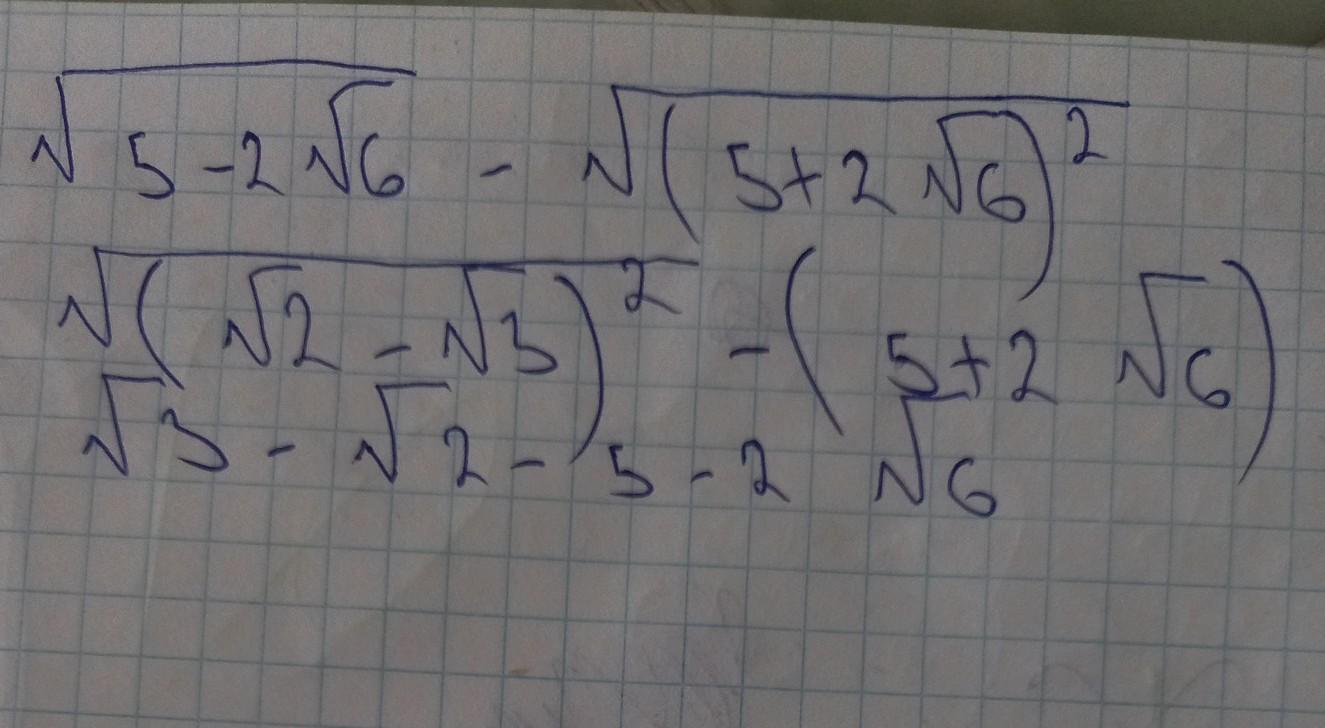 √(5-2√6) - √((5+2√6)²)
√((√2 - √3)²) - (5+2√6)
√3 - √2 - 5 - 2√6